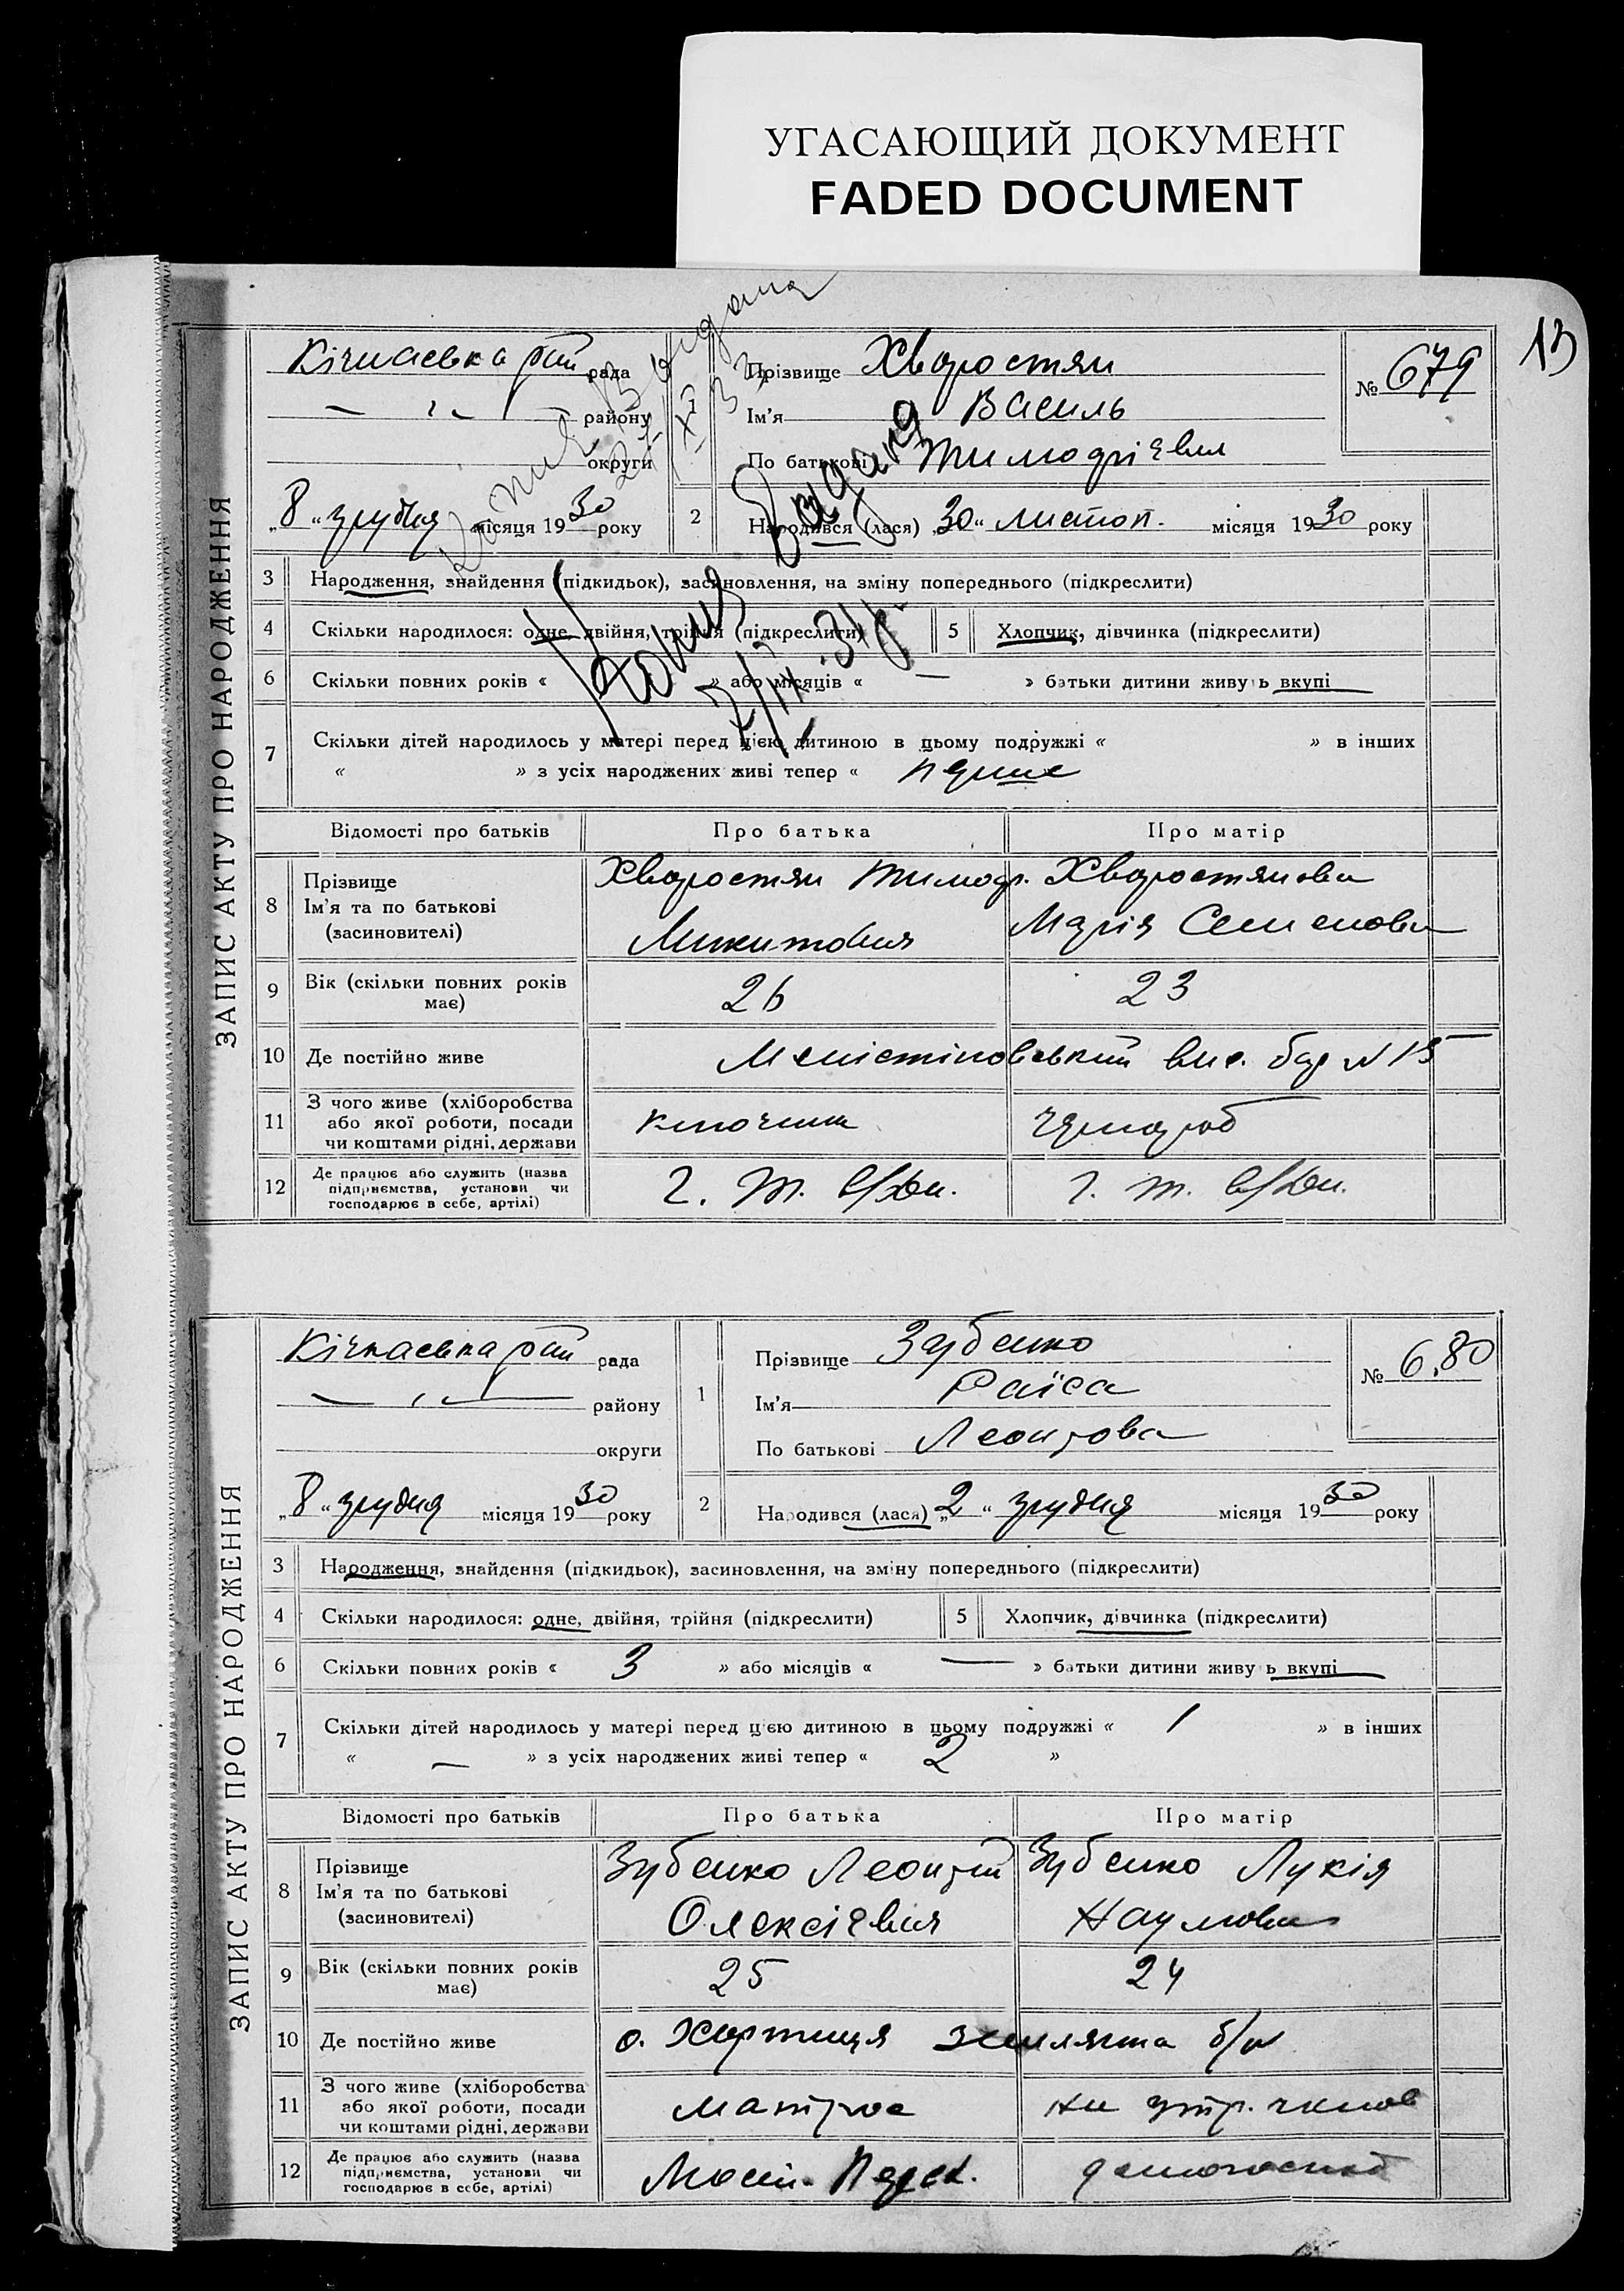 УГАСАЮЩИЙ ДОКУМЕНТ
FADED DOCUMENT
13
ЗАПИС АКТУ ПРО НАРОДЖЕННЯ
Кічкаська рай рада
— „ — району
округи
„8“ грудня місяця 1930 року
Прізвище Хворостян
Ім'я Василь
По батькові Тимофієвич
№ 679
2 Народився (лася) „30“ листоп. місяця 1930 року
Копія видана
Копія видана
3 Народження, знайдення (підкидьок), засиновлення, на зміну попереднього (підкреслити)
4 Скільки народилося: одне, двійня, трійня (підкреслити)
5 Хлопчик, дівчинка (підкреслити)
6 Скільки повних років « » або місяців « — » батьки дитини живуть вкупі
7 Скільки дітей народилось у матері перед цією дитиною в цьому подружжі « » в інших
« » з усіх народжених живі тепер « перше
Відомості про батьків Про батька Про матір
8 Прізвище
Ім'я та по батькові
(засиновителі)
Хворостян Тимоф.
Микитович
Хворостянова
Марія Семеновна
9 Вік (скільки повних років
має)
26 23
10 Де постійно живе
бар N 15
11 З чого живе (хліборобства
або якої роботи, посади
чи коштами рідні, держави
чорнороб
12 Де працює або служить (назва
підприємства, установи чи
господарює в себе, артілі)
ЗАПИС АКТУ ПРО НАРОДЖЕННЯ
Кічкаська рай рада
— „ — району
округи
„8“ грудня місяця 1930 року
1 Прізвище Зубенко
Ім'я Раїса
По батькові Леонтова
№ 680
2 Народився (лася) „2“ грудня місяця 1930 року
3 Народження, знайдення (підкидьок), засиновлення, на зміну попереднього (підкреслити)
4 Скільки народилося: одне, двійня, трійня (підкреслити)
5 Хлопчик, дівчинка (підкреслити)
6 Скільки повних років « 3 » або місяців « — » батьки дитини живуть вкупі
7 Скільки дітей народилось у матері перед цією дитиною в цьому подружжі « 1 » в інших
« — » з усіх народжених живі тепер « 2 »
Відомості про батьків Про батька Про матір
8 Прізвище
Ім'я та по батькові
(засиновителі)
Зубенко Леонтій
Олексієвич
Зубенко Лукія
Наумовна
9 Вік (скільки повних років
має)
25 24
10 Де постійно живе
о. Хортиця землянка б/н
11 З чого живе (хліборобства
або якої роботи, посади
чи коштами рідні, держави
матрос на утр. чолов
12 Де працює або служить (назва
підприємства, установи чи
господарює в себе, артілі)
домогоспод